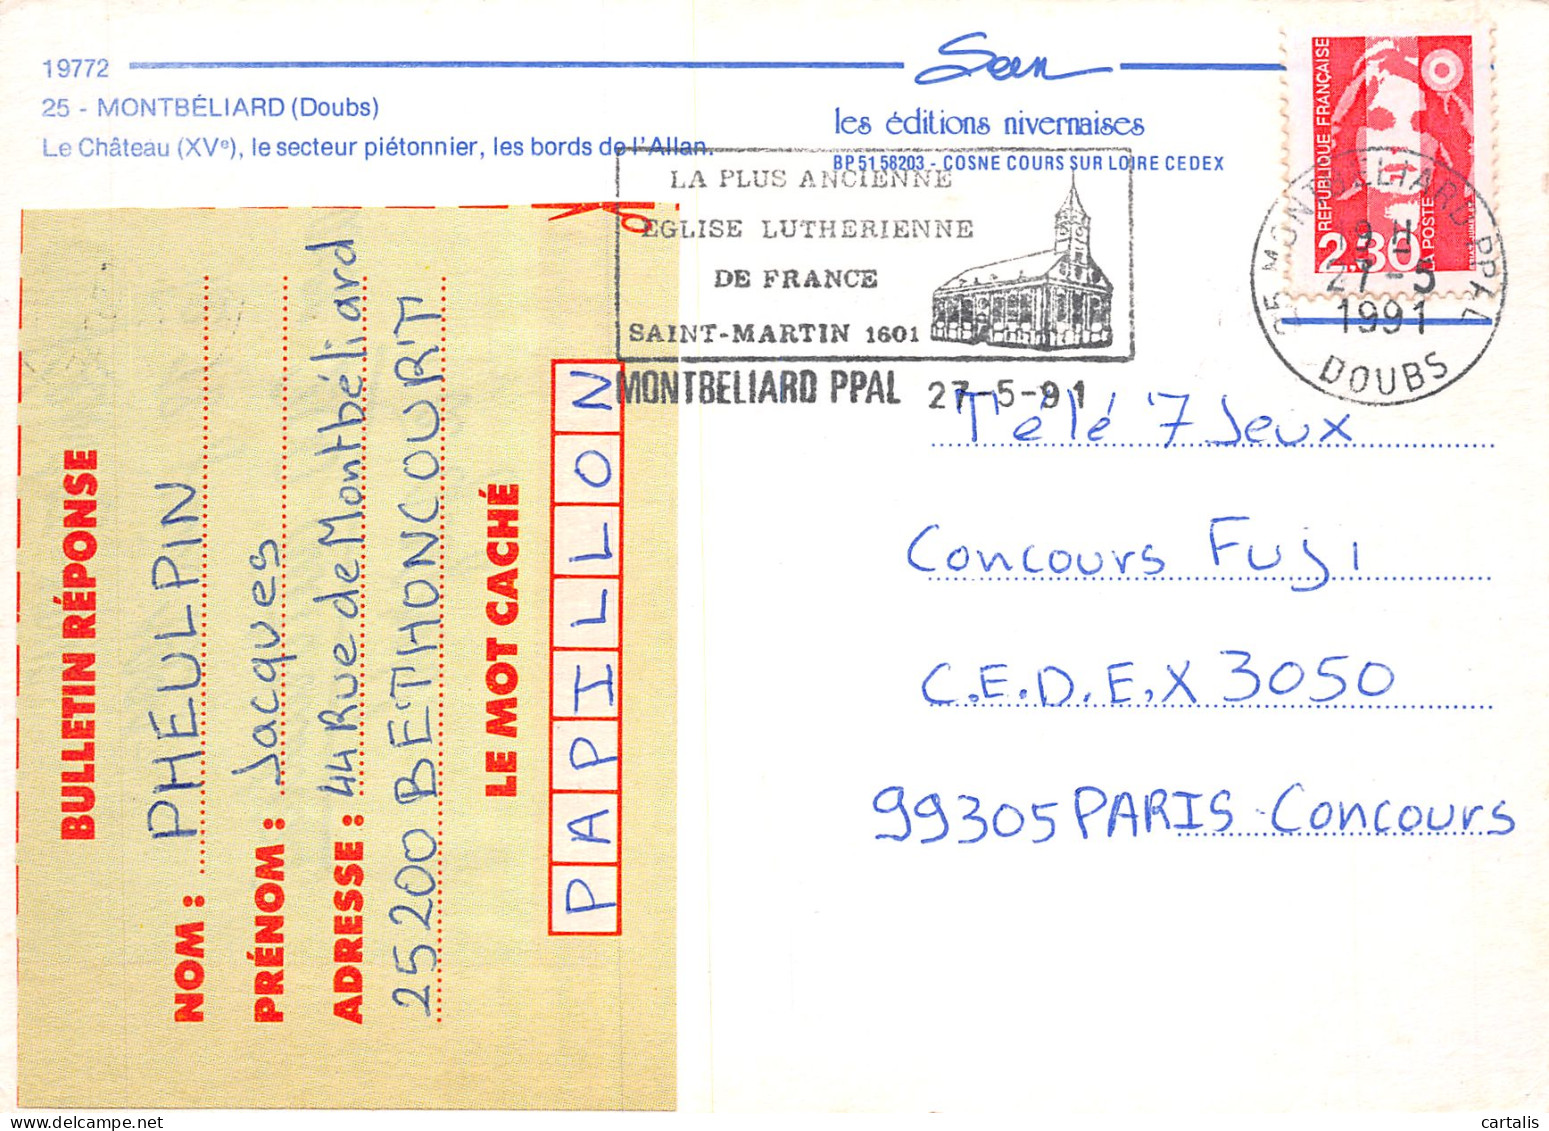 19772
25 - MONTBÉLIARD (Doubs)
Le Château (XVe), le secteur piétonnier, les bords de l'Allan.
les éditions nivernaises
BP 51 58203 - COSNE COURS SUR LOIRE CEDEX
RÉPUBLIQUE FRANÇAISE
2,30
LA POSTE
LA PLUS ANCIENNE
EGLISE LUTHERIENNE
DE FRANCE
SAINT-MARTIN 1601
MONTBELIARD PPAL 27-5-91
25 MONTBELIARD PPAL
19 H
27-5
1991
DOUBS
BULLETIN RÉPONSE
NOM : PHEULPIN
PRÉNOM : Jacques
ADRESSE : 44 Rue de Montbéliard
25200 BETHONCOURT
LE MOT CACHÉ
PAPILLON
Télé 7 Jeux
Concours Fuji
C.E.D.E.X 3050
99305 PARIS Concours
cartalis